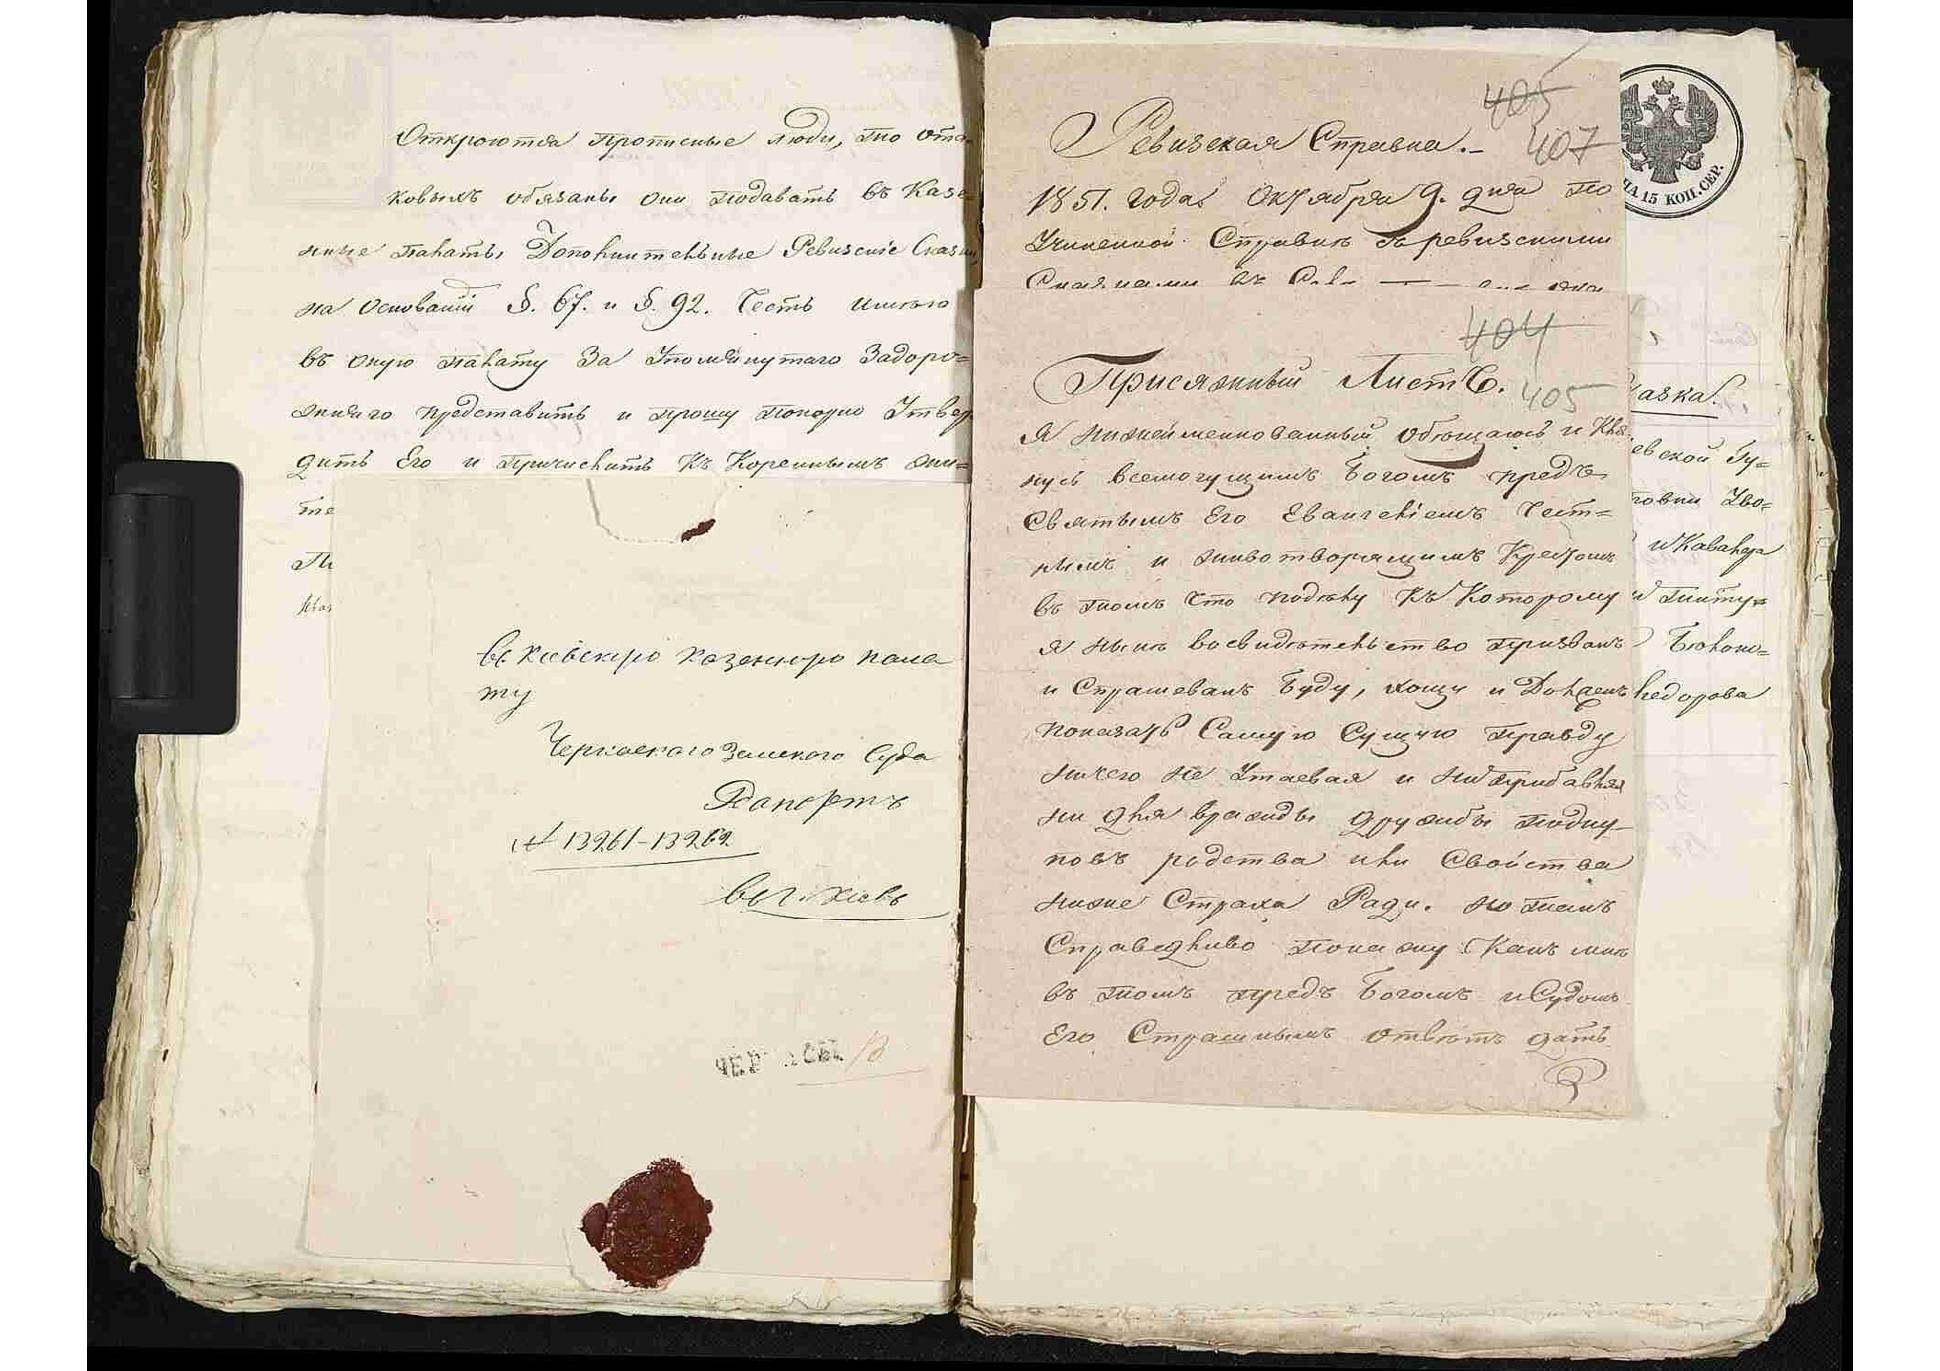 Откроются прописные люди, то ота-
ковыхъ обязаны они подавать въ Казе-
нные палаты Дополнительные Ревизскіе Сказки,
на основаніи §. 67. и §. 92. Честь имѣю
въ оную палату за упомянутаго Задоро=
жняго представить и прошу покорно Утвер
дить Его и причислить къ Кореннымъ жи=
те
въ Кіевскую казенную пала
ту
Черкаскаго Земскаго Суда
Рапортъ
№ 13261-13262
въ г. Кіевъ
ЧЕР КСЫ
405
Ревизская Справка.-
407
1851. года Октября 9. дня по
Учиненной Справкѣ съ ревизскими
Сказками
404
Присяжный Листъ.
405
Я нижеименнованный обещаюсь и Кля
нусь всемогущимъ Богомъ предъ
Святымъ Его Евангеліемъ Чест=
нымъ и животворящимъ Крестомъ
въ томъ что подѣлу къ Которому
я нынѣ восвидѣтельство призванъ
и Спрашеванъ Буду, хощу и Долженъ
показать Самую Сущую правду
ничего не Утаевая и ниприбавляя
ни для вражды дружбы подку-
повъ родства или Свойства
ниже Страха Ради. но такъ
Справедливо покажу Какъ мнѣ
въ томъ предъ Богомъ и Судомъ
Его Страшнымъ отвѣтъ дать
НА 15 КОП. СЕР.
казка.
евской Гу=
ловки Уво=
и Кавалера
титу=
Бѣлоно=
ѳедорова